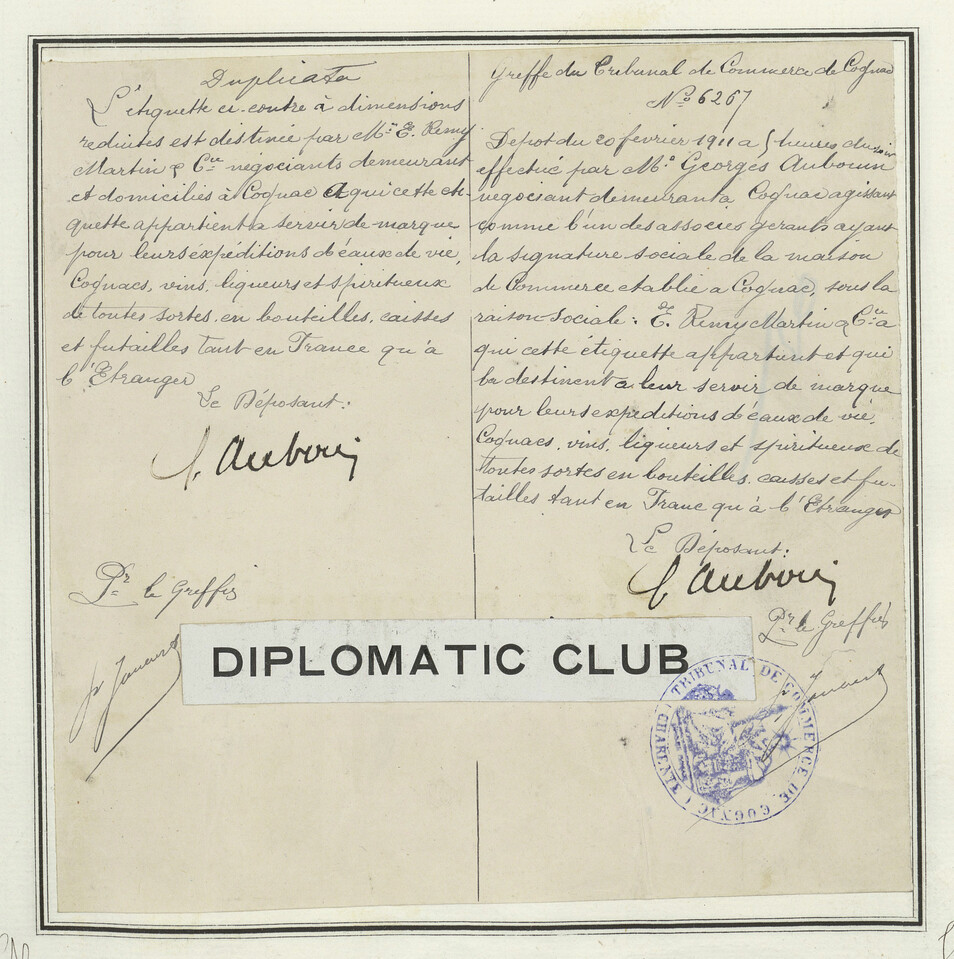 Duplicata
L'étiquette ci-contre à dimensions
reduites est distinée par Mrs E. Remy
Martin & Cie negociants demeurant
et domiciliés à Cognac et qui cette eti-
quette appartient a servir de marque
pour leurs éxpéditions d'éaux de vie,
Cognacs, vins, liqueurs et spiritueux
de toutes sortes, en bouteilles, caisses
et futailles tant en France qu'à
l'Etranger
Le Déposant:
G. Aubouin
Pr le Greffier
DIPLOMATIC CLUB
Greffe du Tribunal de Commerce de Cognac
No 6267
Depot du 20 février 1911 a 5 heures du soir
effectué par Mr Georges Aubouin
negociant demeurant a Cognac agissant
comme l'un des associés gerants ayant
la signature sociale de la maison
de Commerce etablie a Cognac, sous la
raison Sociale: E. Remy Martin & Cie a
qui cette étiquette appartient et qui
la destinent a leur servir de marque
pour leurs expeditions d'éaux de vie,
Cognacs, vins, liqueurs et spiritueux de
toutes sortes en bouteilles, caisses et fu-
tailles tant en Franc qu'à l'Etranger
Le Déposant:
G. Aubouin
Pr le Greffier
TRIBUNAL DE COMMERCE DE COGNAC (CHARENTE)